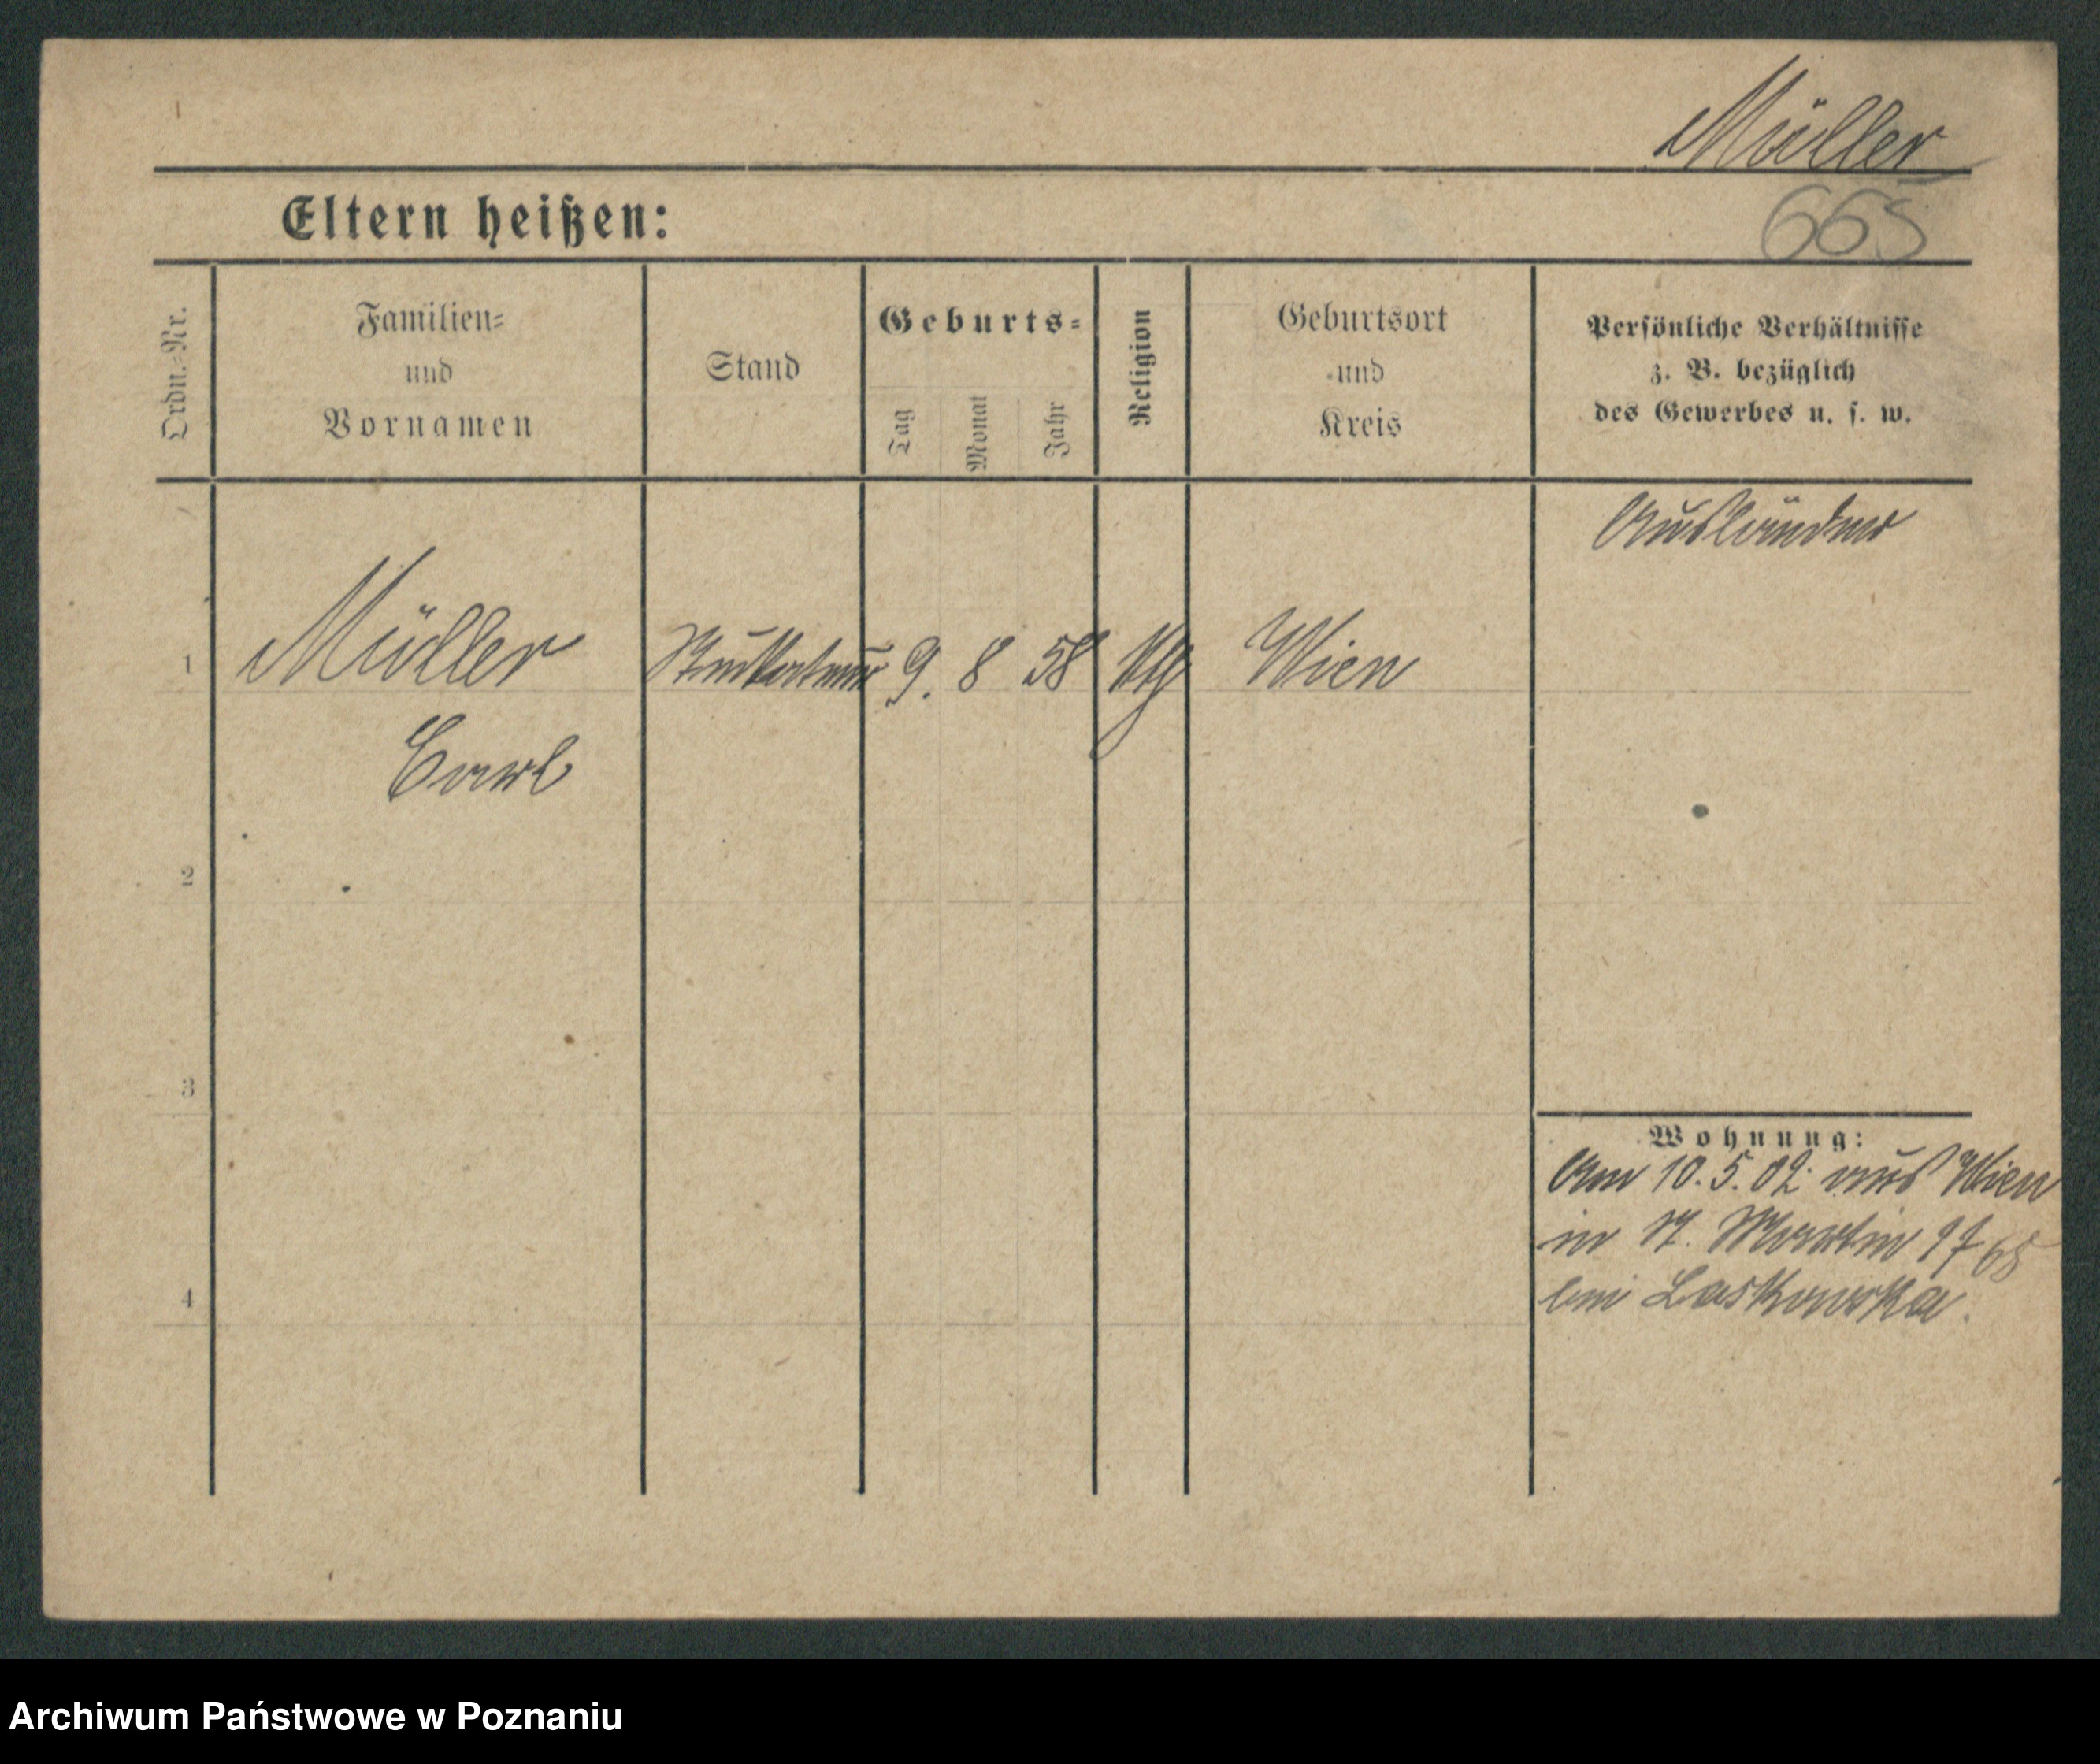 Müller
665
Eltern heißen:
Ordn.-Nr.
Familien-
und
Vornamen
Stand
Geburts-
Tag
Monat
Jahr
Religion
Geburtsort
und
Kreis
Persönliche Verhältnisse
z. B. bezüglich
des Gewerbes u. s. w.
Ausländer
1 Müller Stuckateur 9. 8 58 Kth Wien
Carl
2
3
4
Wohnung:
Am 10.5.02 aus Wien
in St. Martin
bei Laskowska.
Archiwum Państwowe w Poznaniu